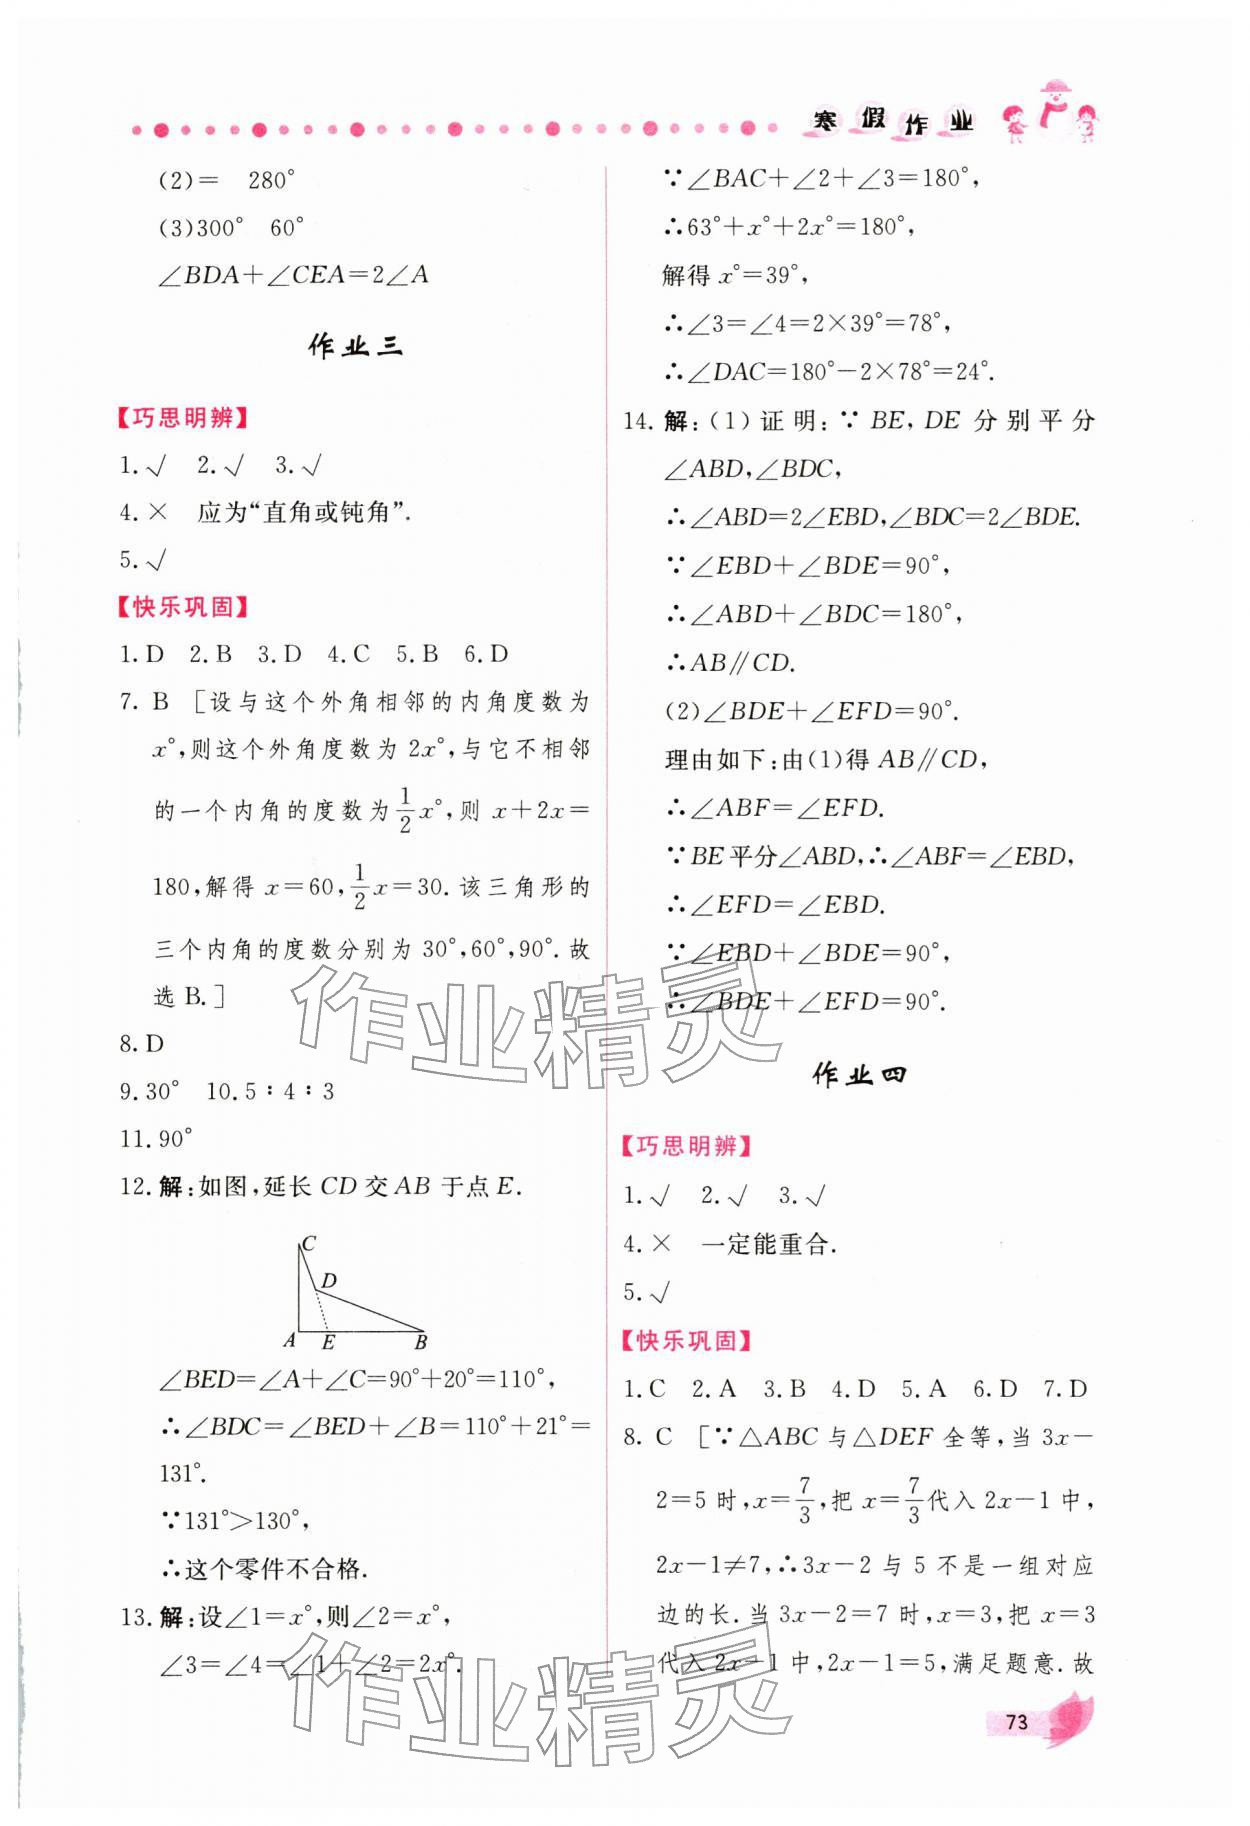 寒假作业
(2)＝　280°
(3)300°　60°
∠BDA＋∠CEA＝2∠A
作业三
【巧思明辨】
1.√　2.√　3.√
4.×　应为“直角或钝角”.
5.√
【快乐巩固】
1.D　2.B　3.D　4.C　5.B　6.D
7. B　[设与这个外角相邻的内角度数为
x°,则这个外角度数为 2x°,与它不相邻
的一个内角的度数为 1/2 x°,则 x＋2x＝
180,解得 x＝60, 1/2 x＝30.该三角形的
三个内角的度数分别为 30°,60°,90°.故
选 B.]
8. D
9.30°　10.5∶4∶3
11.90°
12.解:如图,延长 CD 交 AB 于点 E.
C
D
A E B
∠BED＝∠A＋∠C＝90°＋20°＝110°,
∴∠BDC＝∠BED＋∠B＝110°＋21°＝
131°.
∵131°＞130°,
∴这个零件不合格.
13.解:设∠1＝x°,则∠2＝x°,
∠3＝∠4＝∠1＋∠2＝2x°.
∵∠BAC＋∠2＋∠3＝180°,
∴63°＋x°＋2x°＝180°,
解得 x°＝39°,
∴∠3＝∠4＝2×39°＝78°,
∴∠DAC＝180°－2×78°＝24°.
14.解:(1)证明:∵BE,DE 分别平分
∠ABD,∠BDC,
∴∠ABD＝2∠EBD,∠BDC＝2∠BDE.
∵∠EBD＋∠BDE＝90°,
∴∠ABD＋∠BDC＝180°,
∴AB∥CD.
(2)∠BDE＋∠EFD＝90°.
理由如下:由(1)得 AB∥CD,
∴∠ABF＝∠EFD.
∵BE平分∠ABD,∴∠ABF＝∠EBD,
∴∠EFD＝∠EBD.
∵∠EBD＋∠BDE＝90°,
∴∠BDE＋∠EFD＝90°.
作业四
【巧思明辨】
1.√　2.√　3.√
4.×　一定能重合.
5.√
【快乐巩固】
1.C　2.A　3.B　4.D　5.A　6.D　7.D
8. C　[∵△ABC 与△DEF 全等,当 3x－
2＝5 时,x＝7/3,把 x＝7/3代入 2x－1 中,
2x－1≠7,∴3x－2 与 5 不是一组对应
边的长.当 3x－2＝7 时,x＝3,把 x＝3
代入 2x－1 中,2x－1＝5,满足题意.故
73
作业精灵
作业精灵